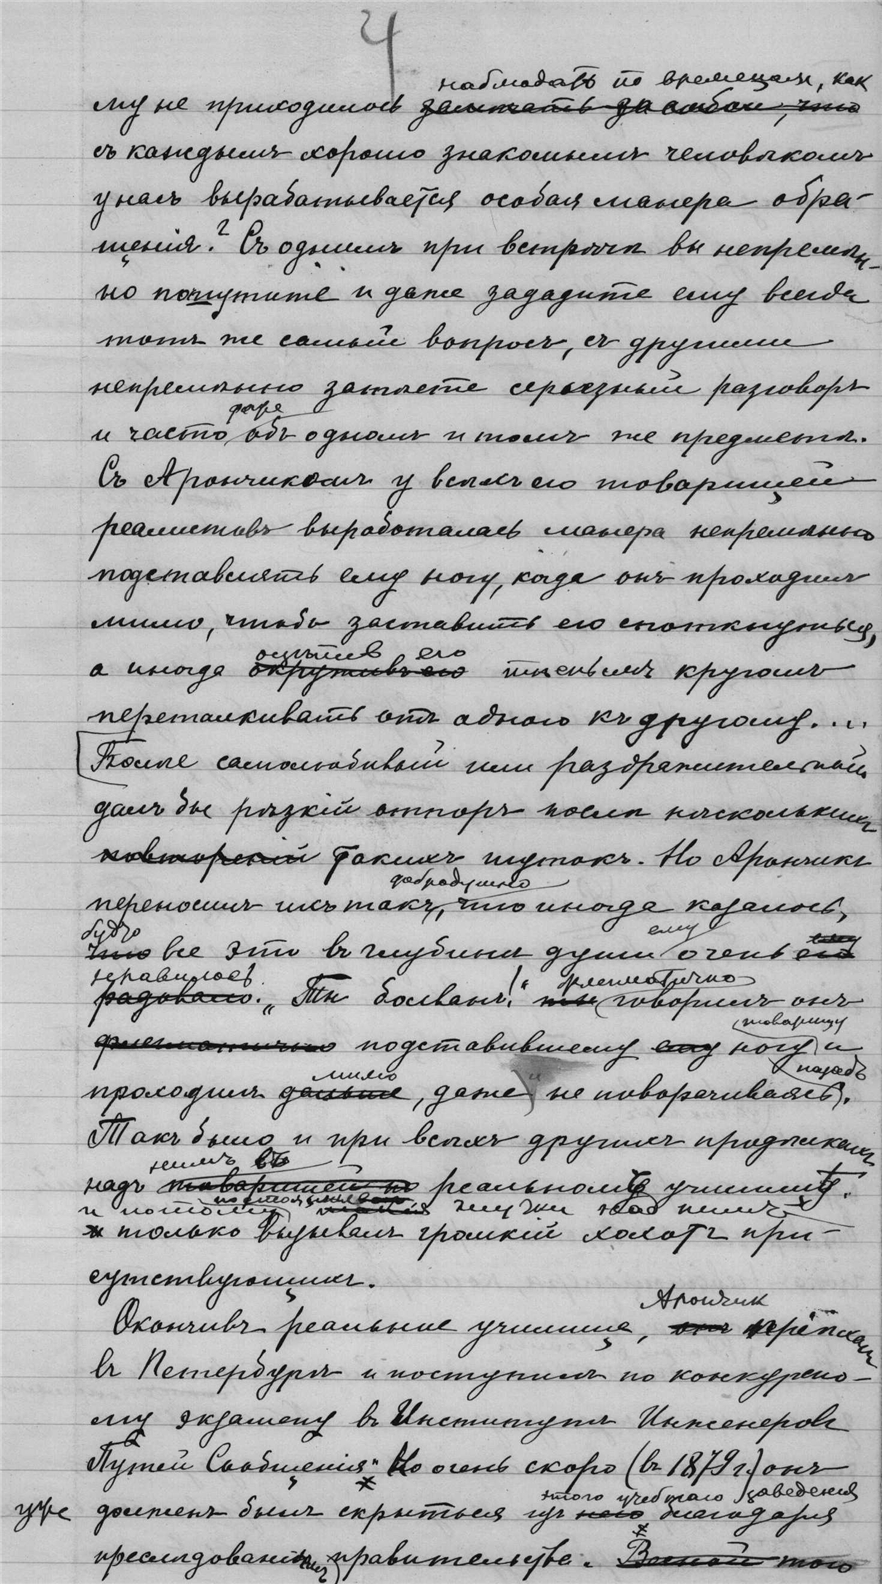 4
наблюдать по временамъ, как
му не приходилось замѣчать за собой, что
съ каждымъ хорошо знакомымъ человѣкомъ
у насъ вырабатывается особая манера обра-
щенія? Съ однимъ при встрѣчѣ вы непремѣн-
но пошутите и даже зададите ему всегда
тотъ же самый вопросъ, съ другими
непремѣнно затѣете серьезный разговоръ
даже
и часто объ одномъ и томъ же предметѣ.
Съ Арончикомъ у всѣхъ его товарищей
реалистовъ выработалась манера непремѣнно
подставлять ему ногу, когда онъ проходилъ
мимо, чтобы заставить его споткнуться,
оцѣпив его
а иногда окруживъ его тѣснымъ кругомъ
перталкивать отъ одного къ другому....
Болѣе самолюбивый или раздражительный
далъ бы рѣзкій отпоръ послѣ нѣсколькихъ
повтореній такихъ шутокъ. Но Арончикъ
добродушно
переносилъ ихъ такъ, что иногда казалось,
будто ему
что все это въ глубинѣ души очень его
нравилось флегматично
радовало. „Ты болванъ!“ говорилъ онъ
товарищу
флегматично подставившему ему ногу и
мимо назадъ
проходилъ дальше, даже и не поворачиваясь.
Такъ было и при всѣхъ другихъ продѣлкахъ
нимъ въ
надъ товарищей по реальному училищу.
и потому шутки над нимъ
только вызывали громкій хохотъ при-
сутствующихъ.
Арончик
Окончивъ реальное училище, онъ пріѣхалъ
въ Петербургъ и поступилъ по конкурсно-
му экзамену въ Институтъ Инженеровъ
Путей Сообщенія. Но очень скоро (въ 1879 г.) онъ
этого учебнаго заведенія
уже должен былъ скрыться изъ него благодаря
преслѣдованіямъ правительства. Виной того